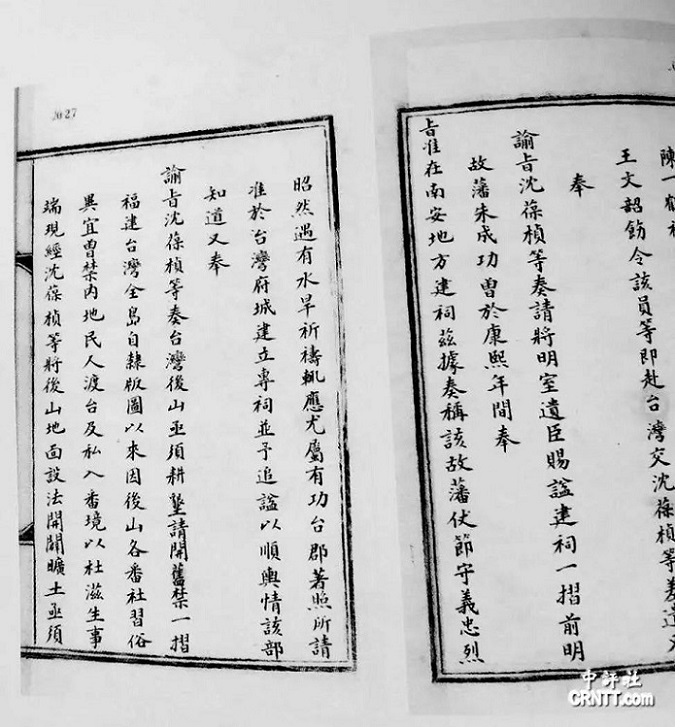 陳一鶴
王文韶飭令該員等即赴台灣交沈葆楨等差遣
奉
諭旨沈葆楨等奏請將明室遺臣賜諡建祠一摺前明
故藩朱成功曾於康熙年間奉
旨准在南安地方建祠茲據奏稱該故藩伏節守義忠烈
昭然遇有水旱祈禱輒應尤屬有功台郡著照所請
准於台灣府城建立專祠並予追諡以順輿情該部
知道又奉
諭旨沈葆楨等奏台灣後山亟須耕墾請開舊禁一摺
福建台灣全島自隸版圖以來因後山各番社習俗
異宜曾禁內地民人渡台及私入番境以杜滋生事
端現經沈葆楨等將後山地面設法開闢曠土亟須
中評社
CRNTT.com